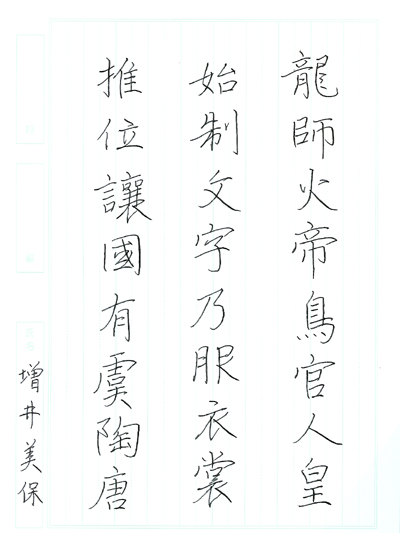 龍師火帝鳥官人皇
始制文字乃服衣裳
推位讓國有虞陶唐
増井美保